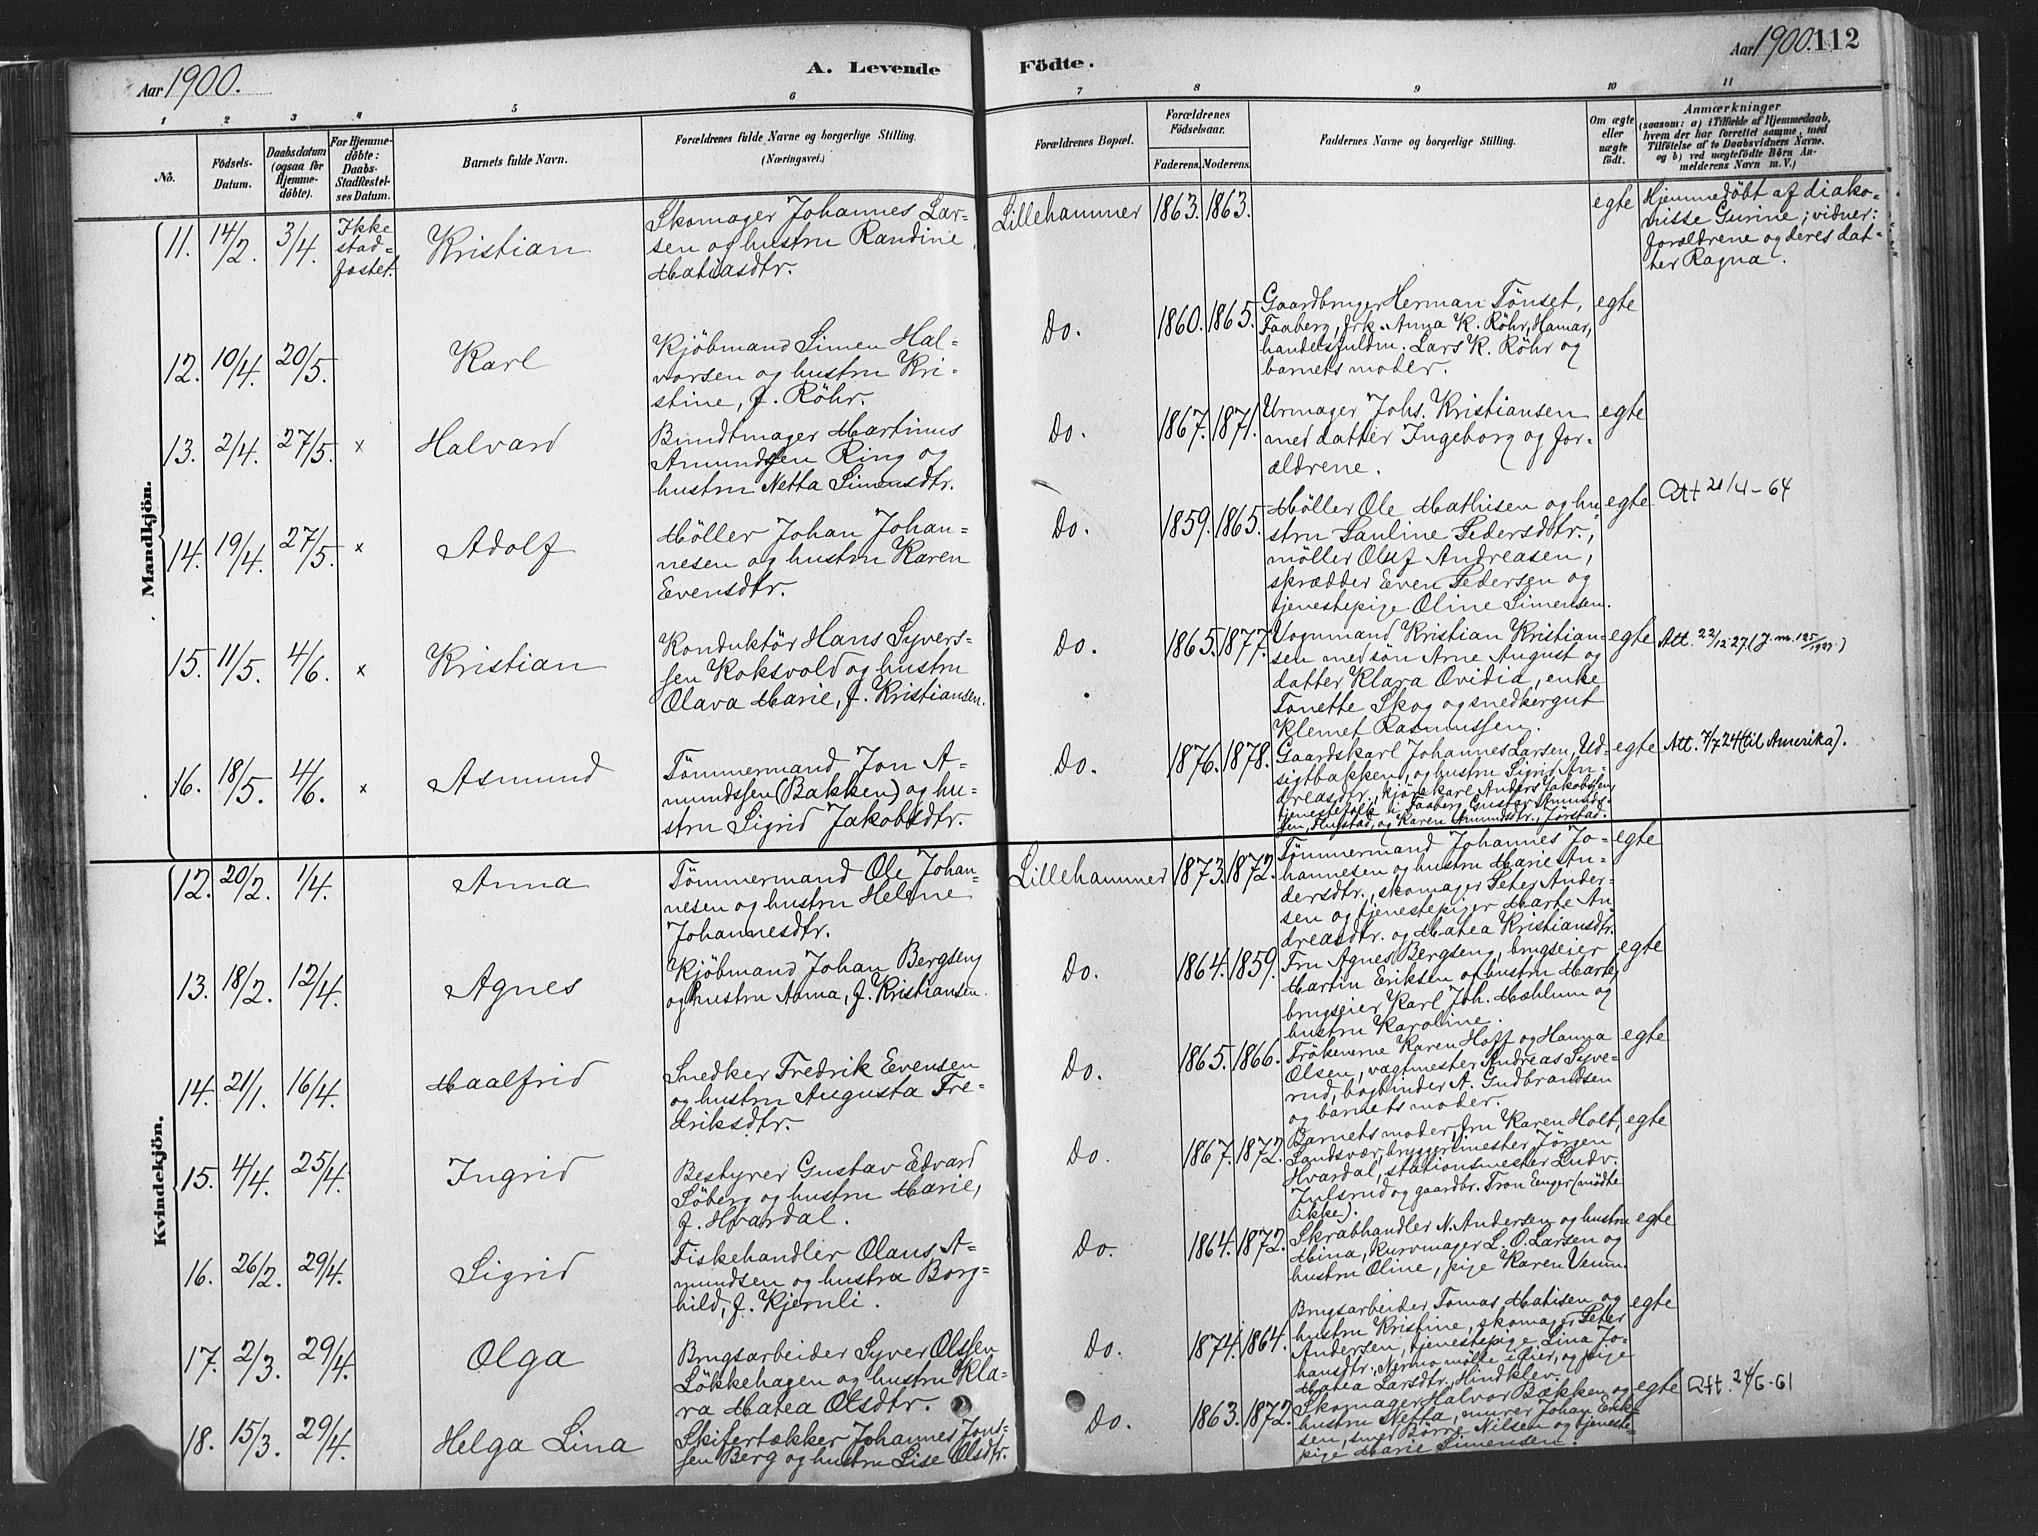 Aar 1900.
A. Levende
Födte.
Aar 1900. 112
1
2
3
4
5
6
7
8
9
10
11
No.
Födsels-
Datum.
Daabsdatum
(ogsaa for
Hjemme-
döbte).
For Hjemme-
döbte:
Daabs-
Stadfæstel-
ses Datum.
Barnets fulde Navn.
Forældrenes fulde Navne og borgerlige Stilling.
(Næringsvei.)
Forældrenes Bopæl.
Forældrenes
Födselsaar.
Faderens.
Moderens.
Faddernes Navne og borgerlige Stilling.
Om ægte
eller
uægte
födt.
Anmærkninger
(saasom: a) i Tilfælde af Hjemmedaab,
hvem der har forrettet samme, med
Tilföielse af to Daabsvidners Navne.
og b) ved uægtefödte Börn An-
melderens Navn m. V.)
Mandkjön.
11. 14/2 3/4. Ikke
stad-
fæstet.
Kristian
Skomager Johannes Lar-
sen og hustru Randine
Matiasdtr.
Lillehammer 1863. 1863.
egte
Hjemmedöbt af diako-
nisse Gurine; vidner:
forældrene og deres dat-
ter Ragna.
12. 10/4. 20/5.
Karl
Kjöbmand Simen Hal-
vorsen og hustru Kri-
stine, f. Röhr.
Do. 1860. 1865.
Gaardbruger Herman Tönset,
Faaberg, frk. Anna K. Röhr, Hamar,
handelsfuldm. Lars K. Röhr og
barnets moder.
egte
13. 2/4. 27/5. x
Halvard
Bundtmager Martinus
Amundsen Ring og
hustru Netta Simensdtr.
Do. 1867. 1871.
Urmager Johs. Kristiansen
med datter Ingeborg og for-
ældrene.
egte
14. 19/4. 27/5. x
Adolf
Möller Johan Johan-
nesen og hustru Karen
Evensdtr.
Do. 1859. 1865.
Möller Ole Mathisen og hu-
stru Pauline Pedersdtr.,
möller Oluf Andreasen,
skrædder Even Pedersen og
tjenestepige Oline Simensen.
egte
Att 21/4-64
15. 11/5. 4/6. x
Kristian
Konduktör Hans Syvers-
sen Roksvold og hustru
Olava Marie, f. Kristiansen.
Do. 1865. 1877.
Vognmand Kristian Kristian-
sen med sön Arne August og
datter Klara Ovidia, enke
Tonette Skog og snedkergut
Klemet Rasmussen.
egte
Att. 22/12 27. (J. m. 125/1927.)
16. 18/5. 4/6. x
Asmund
Tömmermand Jon A-
mundssen (Bakken) og hu-
stru Sigrid Jakobsdtr.
Do. 1876. 1878.
Gaardskarl Johannes Larsen, Ud-
sigtbakken, og hustru Sigrid An-
dreasdtr., kjörekarl Anders Jakobssen,
tjenestefolk i Faaberg Gustav Amunds-
sen, Hustad, og Karen Amundsdtr., Jörstad.
egte
Att. 7/7 24 (til Amerika).
Kvindekjön.
12. 20/2. 1/4.
Anna
Tömmermand Ole Johan-
nesen og hustru Helene
Johannesdtr.
Lillehammer 1873. 1872.
Tömmermand Johannes Jo-
hannesen og hustru Marie An-
dersdtr., skomager Peter Ander-
sen og tjenestepiger Marte An-
dreasdtr. og Matea Kristiansdtr.
egte
13. 18/2. 12/4.
Agnes
Kjöbmand Johan Bergseng
og hustru Anna, f. Kristiansen.
Do. 1864. 1859.
Fru Agnes Bergseng, brugseier
Martin Eriksen og hustru Marte,
brugseier Karl Joh. Mæhlum og
hustru Karoline.
egte
14. 21/1. 16/4.
Maalfrid
Snedker Fredrik Evensen
og hustru Augusta Fre-
driksdtr.
Do. 1865. 1866.
Frökenerne Karen Hoff og Hanna
Olsen, vagtmester Andreas Syve-
rud, bogbinder A. Gudbrandsen
og barnets moder.
egte
15. 4/4. 25/4.
Ingrid
Bestyrer Gustav Edvard
Söberg og hustru Marie,
f. Hvardal.
Do. 1867. 1872.
Barnets moder, fru Karen Holt,
Sandsvær, bryggerimester Jörgen
Hvardal, stationsmester Ludv.
Julsrud og gaardbr. Tron Enger (mödte
ikke).
egte
16. 26/2. 29/4.
Sigrid
Fiskehandler Olaus A-
mundsen og hustru Borg-
hild, f. Kjernli.
Do. 1864. 1872.
Skrabhandler N. Andersen og hustru
Mina, kurvmager L. O. Larsen og
hustru Oline, pige Karen Venm.
egte
17. 2/3. 29/4.
Olga
Brugsarbeider Syver Olssen
Lökkehagen og hustru Kla-
ra Matea Olsdtr.
Do. 1874. 1864.
Brugsarbeider Tomas Matisen og
hustru Kristine, skomager Peter
Andersen, tjenestepige Lina Jo-
hansdtr., Nermo mölle i Öier, og pige
Matea Larsdtr., Hindklev.
egte
18. 15/3. 29/4.
Helga Lina
Skifertækker Johannes Jons-
sen Berg og hustru Lise Olsdtr.
Do. 1863. 1872.
Skomager Halvor Bækken og
hustru Netta, murer Johan Erik-
sen, smed Börre Nilsen og tjeneste-
pige Marie Simensen.
egte
Att. 24/6-61